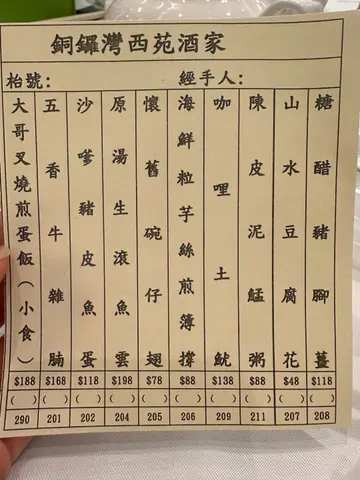 銅鑼灣西苑酒家
枱號： 經手人：
大哥叉燒煎蛋飯(小食) $188 ( ) 290
五香牛雜腩 $168 ( ) 201
沙嗲豬皮魚蛋 $118 ( ) 202
原湯生滾魚雲 $198 ( ) 204
懷舊碗仔翅 $78 ( ) 205
海鮮粒芋絲煎薄撐 $88 ( ) 206
咖哩土魷 $138 ( ) 209
陳皮泥鯭粥 $88 ( ) 211
山水豆腐花 $48 ( ) 207
糖醋豬腳薑 $118 ( ) 208